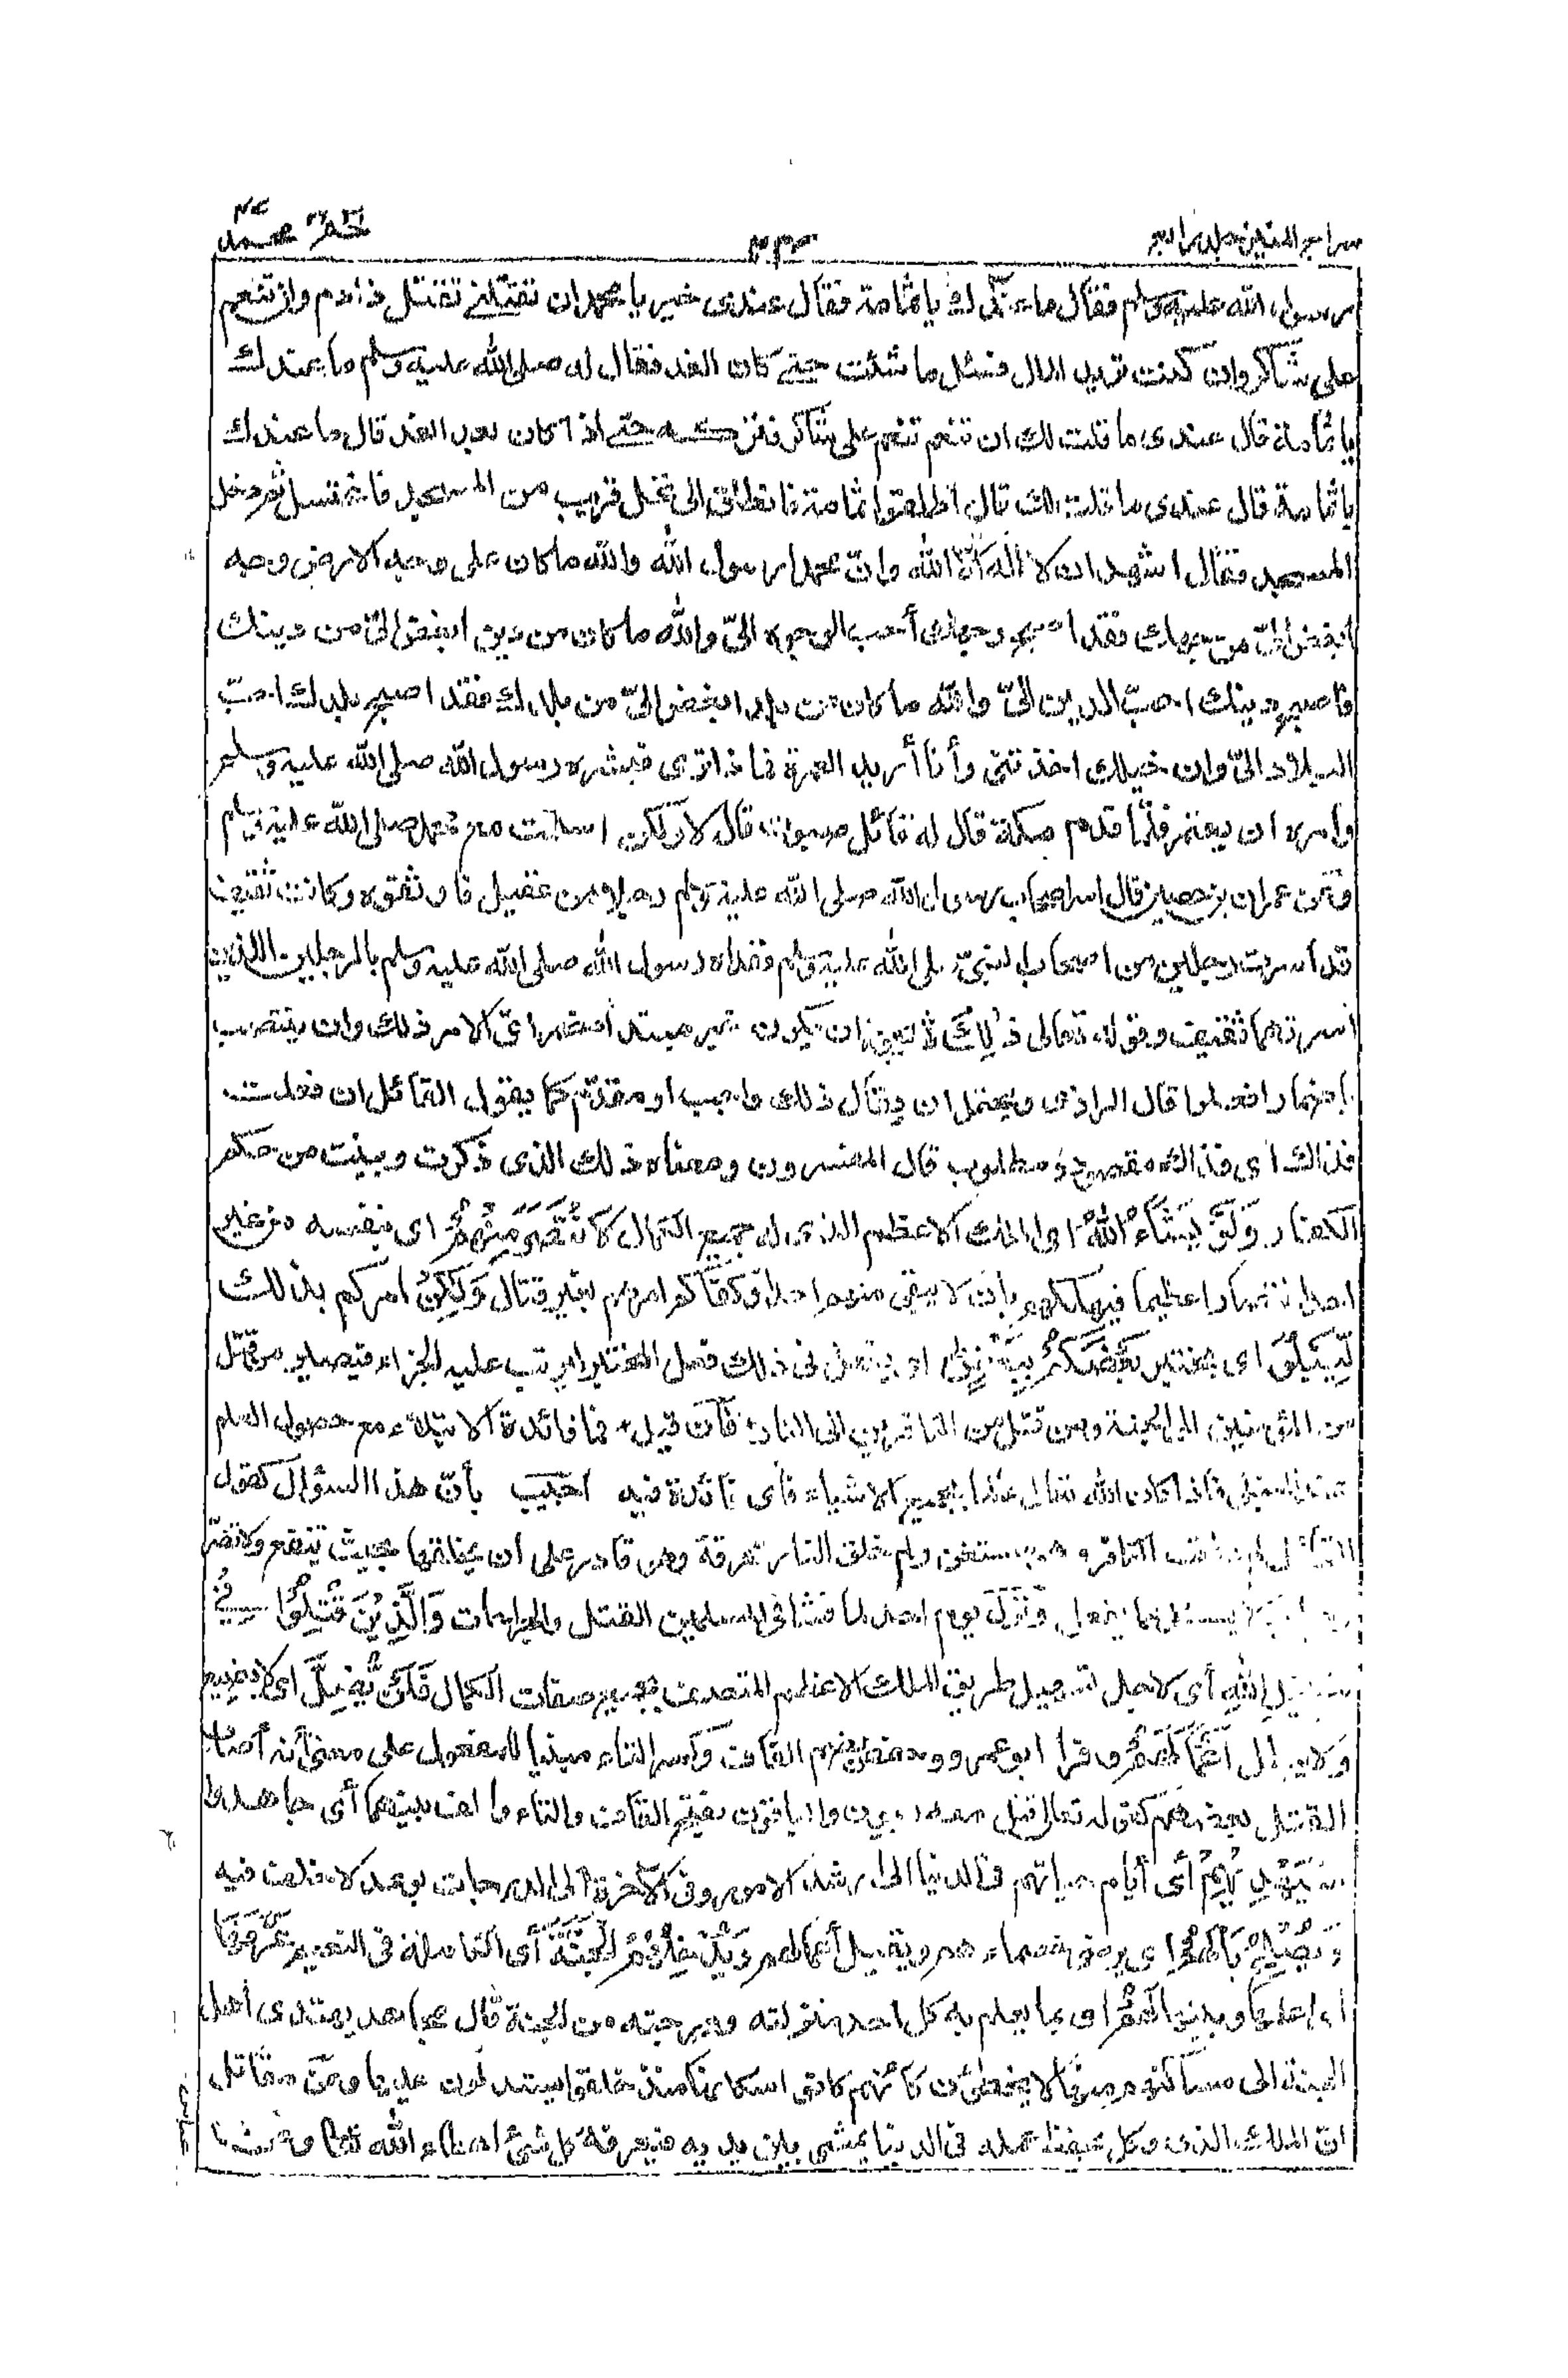 سراج المنير جلد رابع
٢٣
حٰمۤ محمد
رسول الله عليه وسلم فقال ما عندك يا ثمامة فقال عندى خير يا محمد ان تقتلنى تقتل ذا دم وان تنعم
على شاكر وان كنت تريد المال فسئل ما شئت حتى كان الغد فقال له صلى الله عليه وسلم ما عندك
يا ثمامة قال عندى ما قلت لك ان تنعم تنعم على شاكر فتركه حتى اذا كان بعد الغد قال ما عندك
يا ثمامة قال عندى ما قلت لك قال اطلقوا ثمامة فانطلق الى نخل قريب من المسجد فاغتسل ثم دخل
المسجد فقال اشهد ان لا اله الا الله وان محمدا رسول الله والله ما كان على وجه الارض وجه
ابغض الىّ من وجهك فقد اصبح وجهك أحب الوجوه الىّ والله ما كان من دين ابغض الىّ من دينك
فاصبح دينك احبّ الدين الىّ والله ما كان من بلد ابغض الىّ من بلدك فقد اصبح بلدك احبّ
البلاد الىّ وان خيلك اخذتنى وأنا أريد العمرة فماذا ترى فبشره رسول الله صلى الله عليه وسلم
وامره ان يعتمر فلما قدم مكة قال له قائل صبوت قال لا ولكن اسلمت مع محمد صلى الله عليه وسلم
وعن عمران بن حصين قال اسر اصحاب رسول الله صلى الله عليه وسلم رجلا من عقيل فاوثقوه وكانت ثقيف
قد أسرت رجلين من اصحاب النبىّ صلى الله عليه وسلم ففداه رسول الله صلى الله عليه وسلم بالرجلين اللذين
اسرتهما ثقيف وقوله تعالى ذٰلِكَ يجوز ان يكون خبر مبتدأ مضمر اىّ الامر ذلك وان ينتصب
باضمار افعلوا قال الرازى ويحتمل ان يقال ذلك واجب او مقدّم كما يقول القائل ان فعلت
فذاك اى فذاك مقصود ومطلوب قال المفسرون ومعناه ذلك الذى ذكرت وبينت من حكم
الكفار وَلَوْ يَشَآءُ اللّٰهُ اى الملك الاعظم الذى له جميع الكمال لَانْتَصَرَ مِنْهُمْ اى بنفسه من غير
احد انتصارا عظيما فيهلكهم بان لا يبقى منهم احدا وكفاكم امرهم بغير قتال وَلٰكِنْ امركم بذلك
لِّيَبْلُوَ اى يختبر بَعْضَكُمْ بِبَعْضٍ اى يفعل فى ذلك فعل المختبر ليترتب عليه الجزاء فيصير من قتل
من المؤمنين الى الجنة ومن قتل من الكافرين الى النار فان قيل فما فائدة الابتلاء مع حصول العلم
عند المبتلى فاذا كان الله تعالى عالما بجميع الاشياء فاى فائدة فيه اجيب بأن هذا السؤال كقول
القائل لم عاقب الكافر وهو مستغن ولم خلق النار محرقة وهو قادر على ان يخلقها بحيث تنفع ولا تضرّ
لا يسئل عما يفعل ونزل يوم احد لما فشا فى المسلمين القتل والجراحات وَالَّذِيْنَ قُتِلُوْا فِىْ
سَبِيْلِ اللّٰهِ أى لاجل تسهيل طريق الملك الاعظم المتصف بجميع صفات الكمال فَلَنْ يُّضِلَّ اى لا يضيع
ولا يبطل اَعْمَالَهُمْ وقرأ ابو عمرو وحفص بضم القاف وكسر التاء مبنيا للمفعول على معنى أنه أصاب
القتل بعضهم كقوله تعالى قتل معه ربيون والباقون بفتح القاف والتاء والف بينهما أى جاهدوا
سَيَهْدِيْهِمْ أى أيام حياتهم فى الدنيا الى ارشد الامور وفى الآخرة الى الدرجات بوعد لا خلف فيه
وَيُصْلِحُ بَالَهُمْ اى يرضى خصماءهم ويقبل أعمالهم وَيُدْخِلُهُمُ الْجَنَّةَ أى الكاملة فى النعيم عَرَّفَهَا
اى اعلمها وبينها لَهُمْ اى بما يعلم به كل احد منزلته ودرجته من الجنة قال مجاهد يهتدى اهل
الجنة الى مساكنهم منها لا يخطئون كأنهم كانوا سكانها منذ خلقوا يستدلون عليها وعن مقاتل
ان الملك الذى وكل بحفظ عمله فى الدنيا يمشى بين يديه فيعرفه كل شئ اعطاه الله تعالى